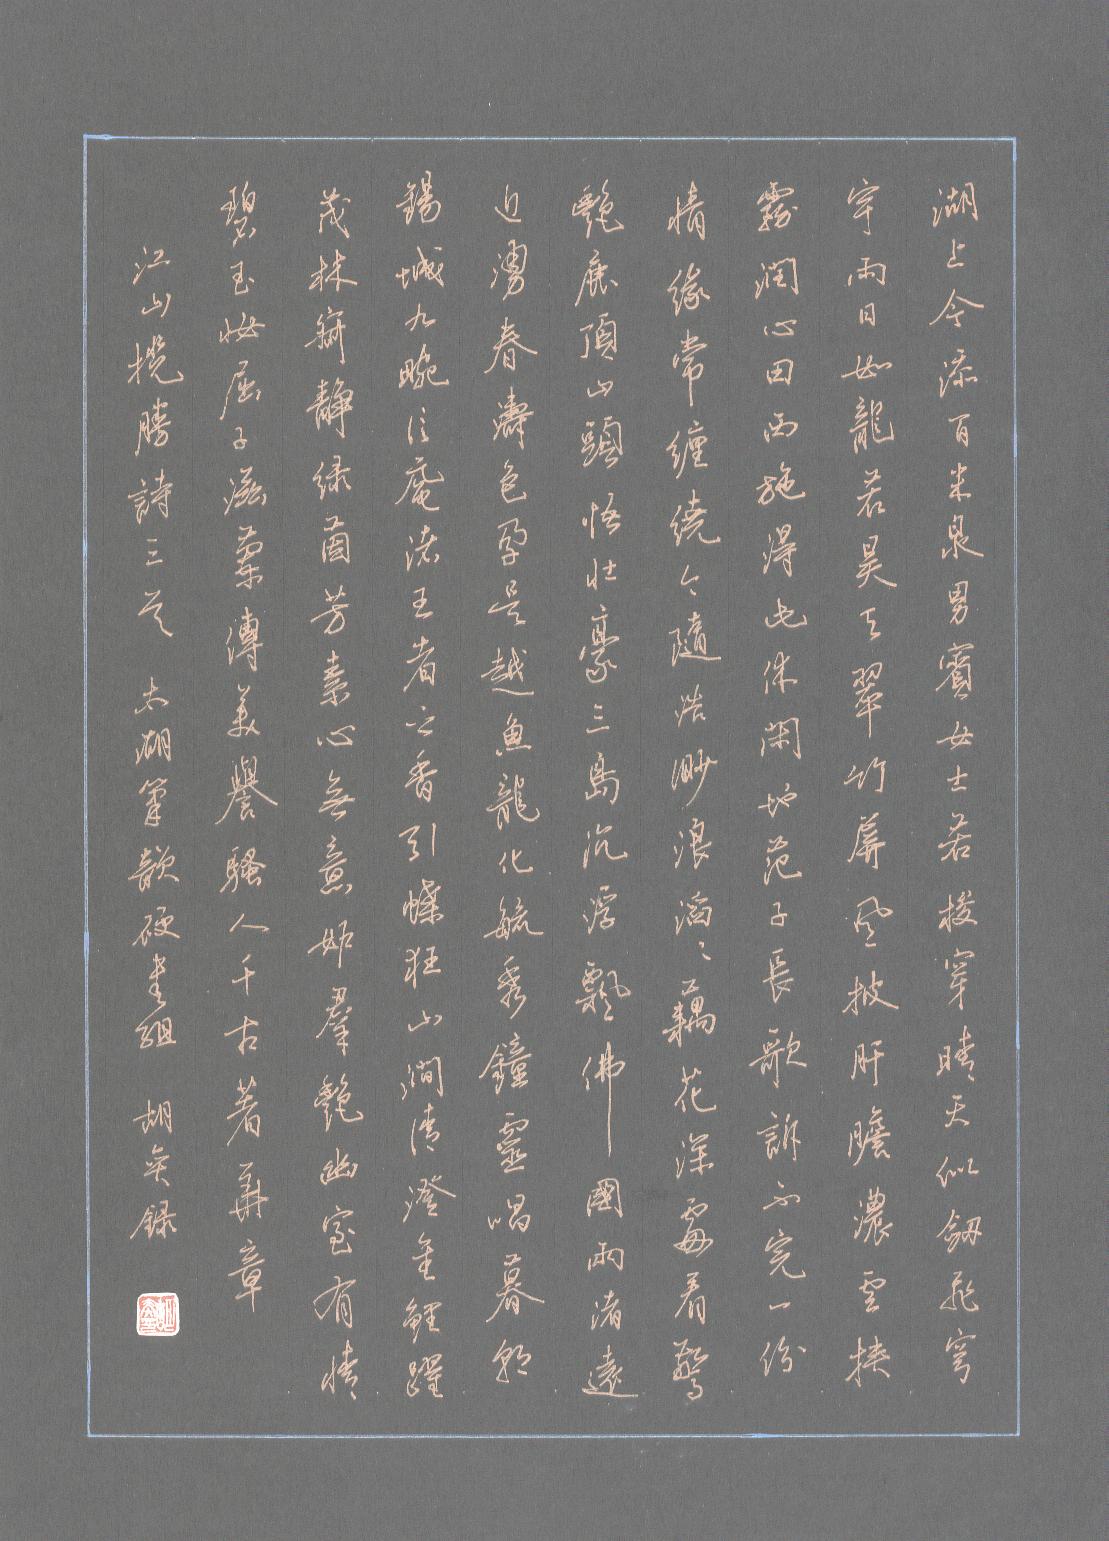 湖上今添百米泉男賓女士若梭穿晴天似劔飛穹
宇雨日如龍若昊天翠竹屏風披肝膽濃雲挾
霧潤心田西施得此休閑地范子長歌訴不完一份
情緣常纏繞々隨浩渺浪滔々藕花深處看驚
艷鹿頂山頭悟壯豪三島沉浮飄佛國兩渚遠
近湧春濤色孕吳越魚龍化毓秀鐘靈唱暮朝
錫城九畹信庵渚王者之香引蝶狂山澗清澄金鯉躍
茂林寂靜綠茵芳素心無意妒羣艷幽室有情
碧玉妝屈子滋蘭傳美譽騷人千古著華章
江山攬勝詩三首 太湖筆歌硬書組 胡 錄